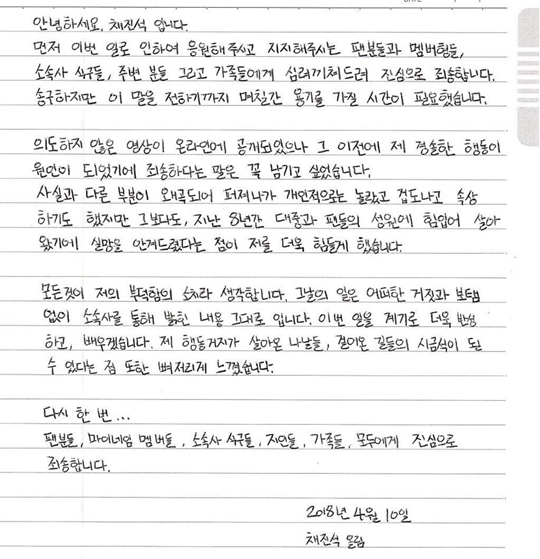 안녕하세요. 채진석 입니다.
먼저 이번 일로 인하여 응원해주시고 지지해주시는 팬분들과 멤버형들,
소속사 식구들, 주변 분들 그리고 가족들에게 심려끼쳐드려 진심으로 죄송합니다.
송구하지만 이 말을 전하기까지 며칠간 용기를 가질 시간이 필요했습니다.
의도하지 않은 영상이 온라인에 공개되었으나 그 이전에 제 경솔한 행동이
원인이 되었기에 죄송하다는 말은 꼭 남기고 싶었습니다.
사실과 다른 부분이 왜곡되어 퍼져나가 개인적으로는 놀랐고 겁도나고 속상
하기도 했지만 그보다도, 지난 8년간 대중과 팬들의 성원에 힘입어 살아
왔기에 실망을 안겨드렸다는 점이 저를 더욱 힘들게 했습니다.
모든것이 저의 부덕함의 소치라 생각합니다. 그날의 일은 어떠한 거짓과 보탬
없이 소속사를 통해 밝힌 내용 그대로 입니다. 이번 일을 계기로 더욱 반성
하고, 배우겠습니다. 제 행동거지가 살아온 나날들, 걸어온 길들의 시금석이 될
수 있다는 점 또한 뼈저리게 느꼈습니다.
다시 한 번...
팬분들, 마이네임 멤버들, 소속사 식구들, 지인들, 가족들, 모두에게 진심으로
죄송합니다.
2018년 4월 10일
채진석 올림